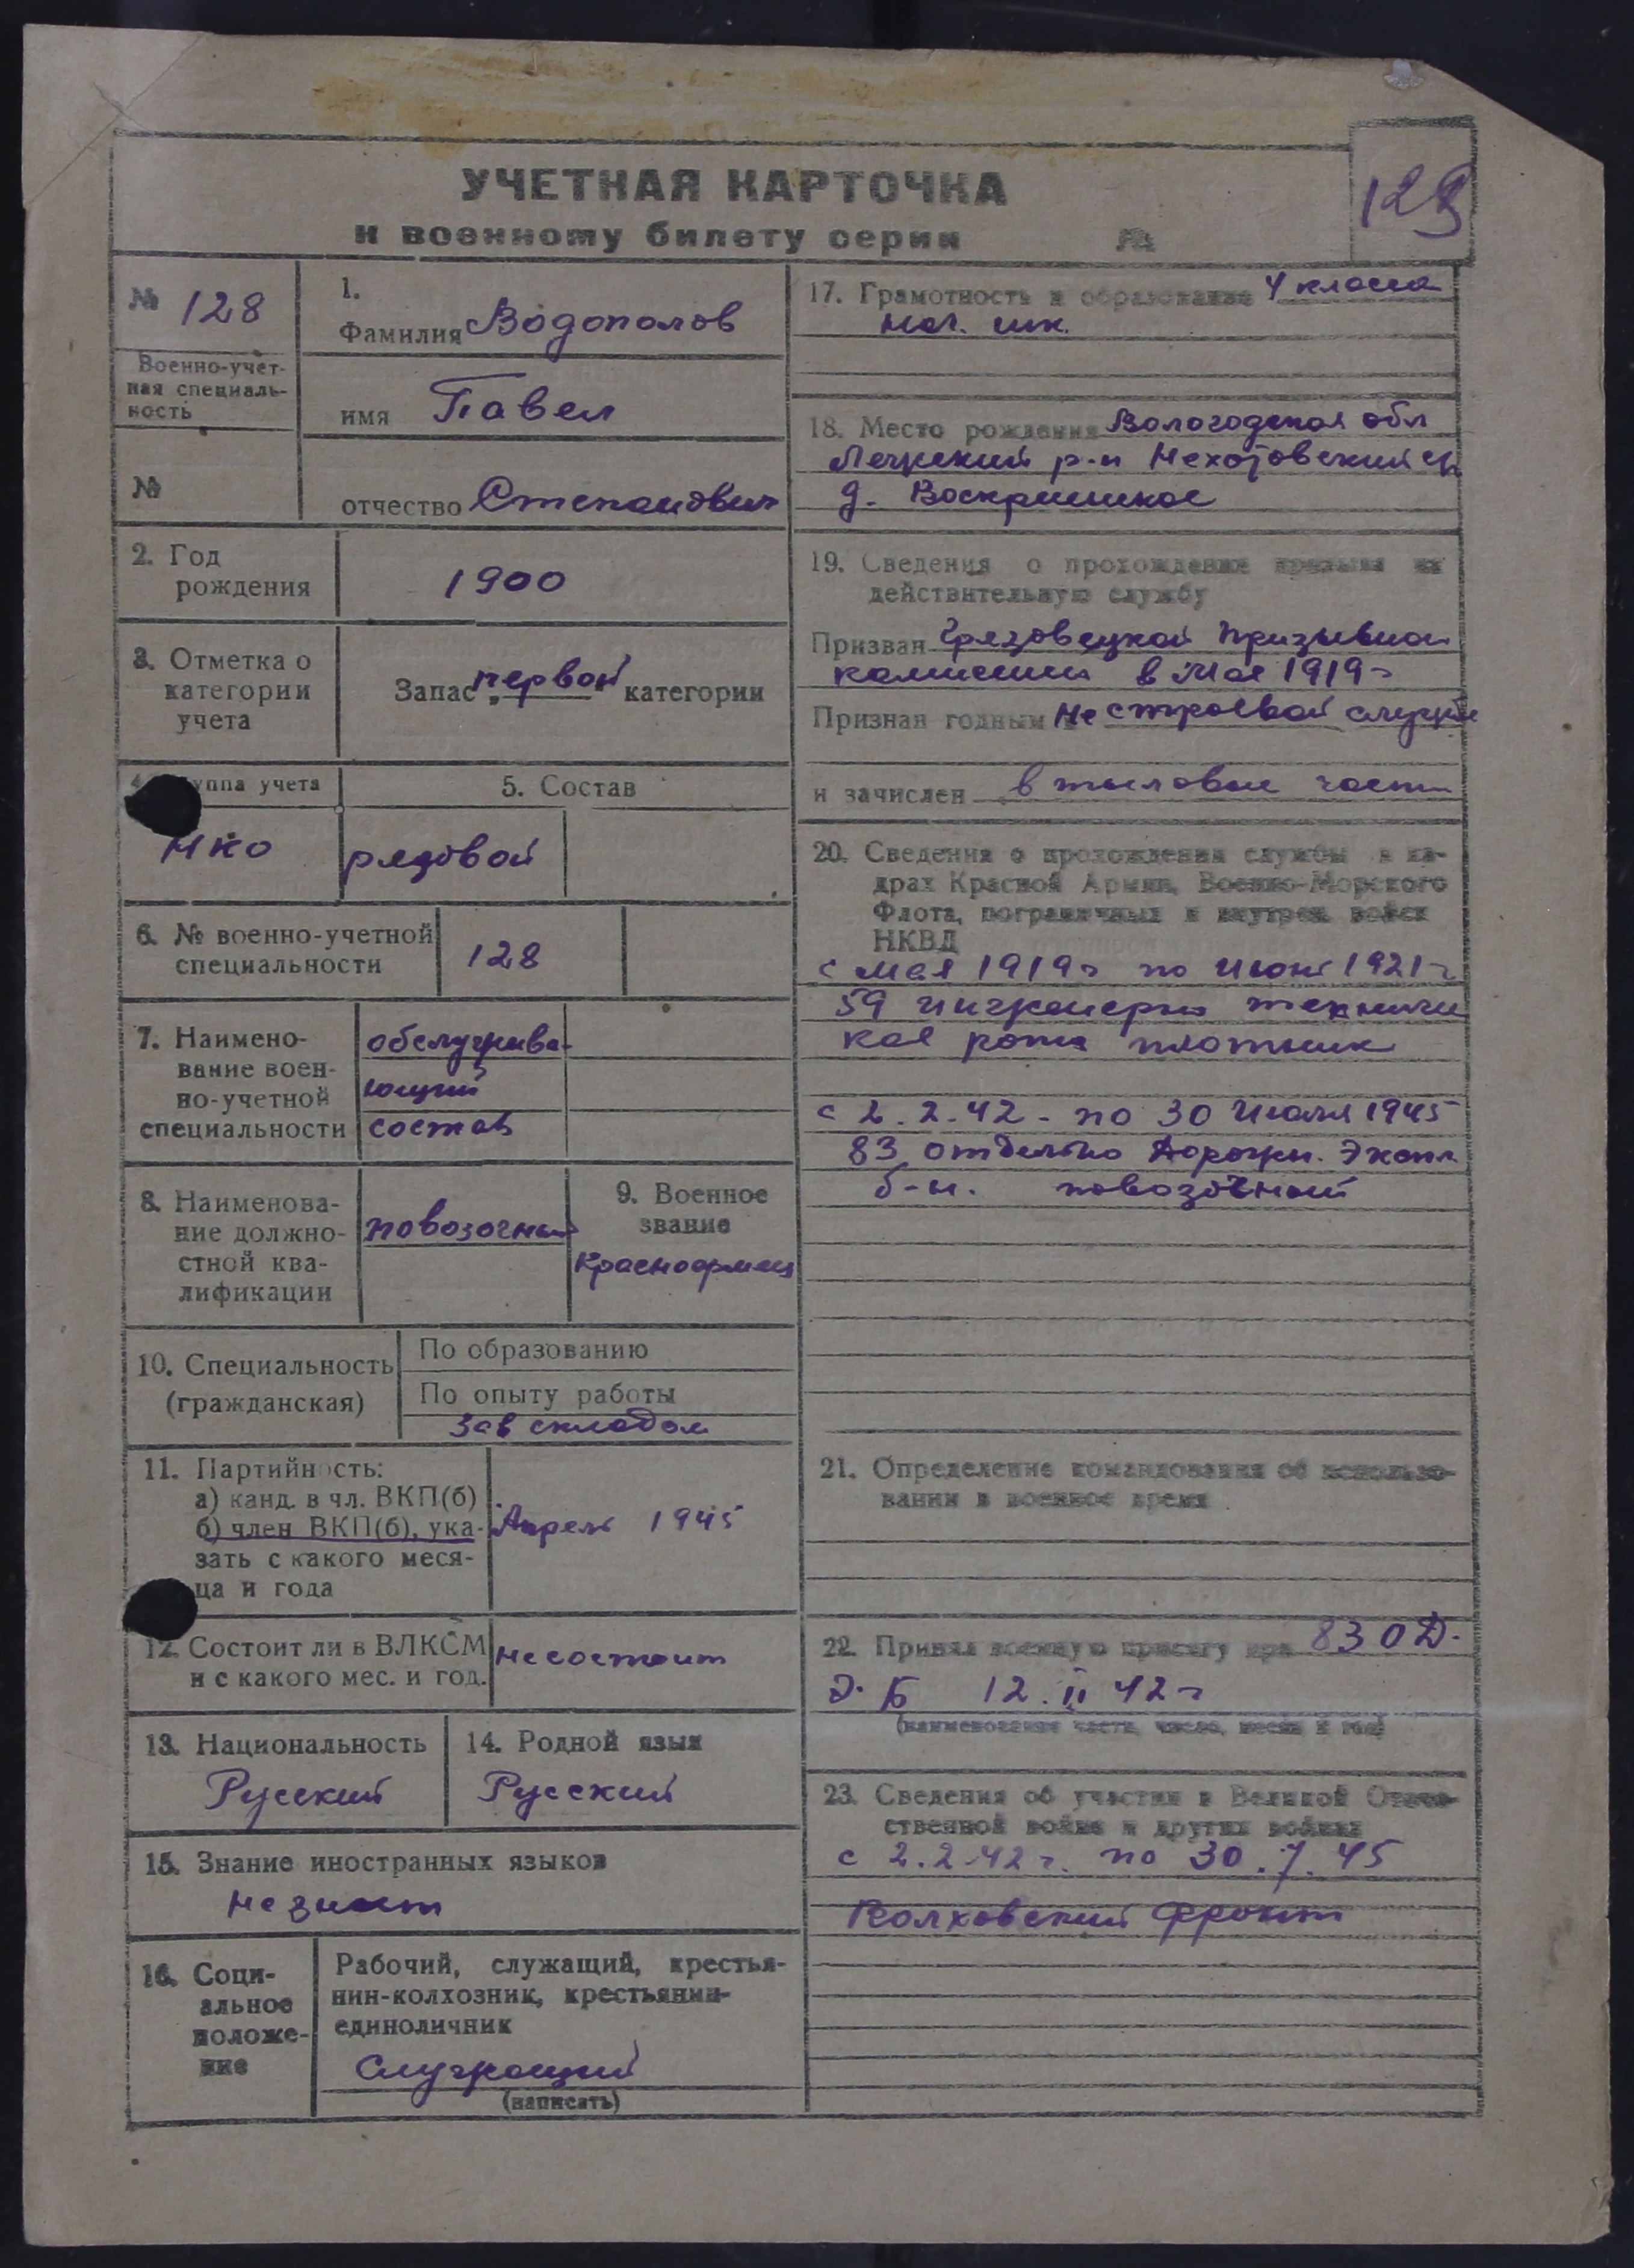 УЧЕТНАЯ КАРТОЧКА
к военному билету серии №
129
№ 128
Военно-учет-
ная специаль-
ность
№
1.
Фамилия Водополов
имя Павел
отчество Степанович
2. Год
рождения
1900
3. Отметка о
категории
учета
Запас „первой“ категории
уппа учета
НКО
5. Состав
рядовой
6. № военно-учетной
специальности
128
7. Наимено-
вание воен-
но-учетной
специальности
обслужива-
ющий
состав
8. Наименова-
ние должно-
стной ква-
лификации
повозочный
9. Военное
звание
Красноармеец
10. Специальность
(гражданская)
По образованию
По опыту работы
Зав складом
11. Партийность:
а) канд. в чл. ВКП(б)
б) член ВКП(б), ука-
зать с какого меся-
ца и года
Апрель 1945
12. Состоит ли в ВЛКСМ
и с какого мес. и год.
не состоит
13. Национальность
Русский
14. Родной язык
Русский
15. Знание иностранных языков
не знает
16. Соци-
альное
положе-
ние
Рабочий, служащий, крестья-
нин-колхозник, крестьянин-
единоличник
Служащий
(написать)
17. Грамотность и образование 4 класса
нач. шк.
18. Место рождения Вологодская обл
р-н
д.
19. Сведения о прохождении призыва на
действительную службу
Призван Грязовецкой призывной
комиссии в мае 1919 г
Признан годным к не строевой службе
и зачислен в тыловые части
20. Сведения о прохождении службы в ка-
драх Красной Армии, Военно-Морского
Флота, пограничных и внутрен. войск
НКВД
с мая 1919 г по июнь 1921 г
59 инженерно техниче
кая рота плотник
с 2.2.42 - по 30 Июля 1945
83 отдельно Дорожн. Экспл
б-н. повозочный
21. Определение командования об использо-
вании в военное время
22. Принял военную присягу при 83 О Д.
Э. Б 12.II 42 г
(наименование части, число, месяц и год)
23. Сведения об участии в Великой Отече-
ственной войне и других войнах
с 2.2.42 г. по 30.7.45
Волховский фронт